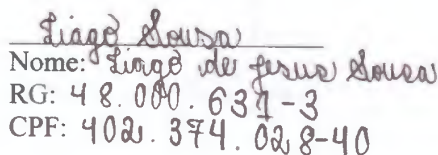 Tiago Sousa
Nome: Tiago de Jesus Sousa
RG: 48.000.631-3
CPF: 402.374.028-40